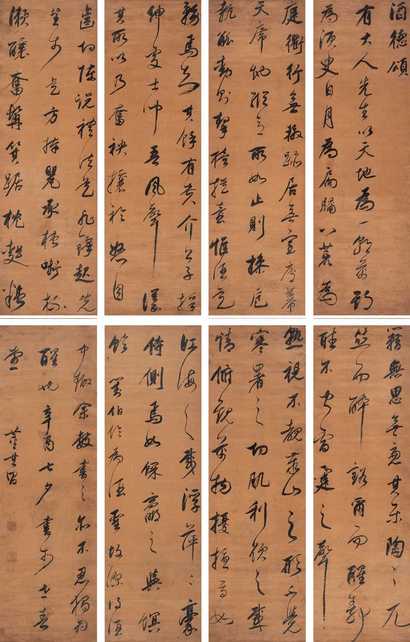 酒德頌
有大人先生以天地為一朝萬期
為須臾日月為扃牖八荒為
庭衢行無轍跡居無室廬幕
天席地縱意所如止則操卮
執觚動則挈榼提壺惟酒是
務焉知其餘有貴介公子搢
紳處士聞吾風聲議
其所以乃奮袂攘衿怒目
齒切陳說禮法是非鋒起先
生於是方捧甖承槽銜杯
漱醪奮髯箕踞枕麴藉
糟無思無慮其樂陶陶兀
然而醉豁爾而醒靜
聽不聞雷霆之聲
熟視不睹泰山之形不覺
寒暑之切肌利欲之感
情俯觀萬物擾擾焉如
江海之載浮萍二豪
侍側焉如蜾蠃之與螟
蛉 劉伯倫為酒
余數書之亦不
醒也 七夕書於
堂 董其昌